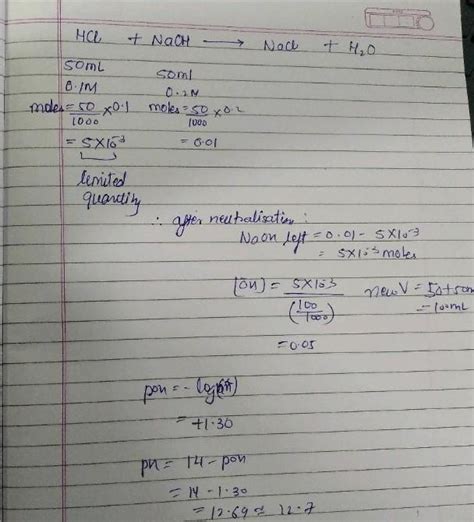 HCl + NaOH → NaCl + H₂O
50mL 50ml
0.1M 0.2M
moles = 50/1000 × 0.1 moles = 50/1000 × 0.2
= 5×10⁻³ = 0.01
limited
quantity
∴ after neutralisation :
NaOH left = 0.01 - 5×10⁻³
= 5×10⁻³ moles
[OH] = 5×10⁻³/(100/1000) new V = 50+50m
= 100mL
= 0.05
pOH = - log
= +1.30
pH = 14 - pOH
= 14 - 1.30
= 12.69 ≈ 12.7